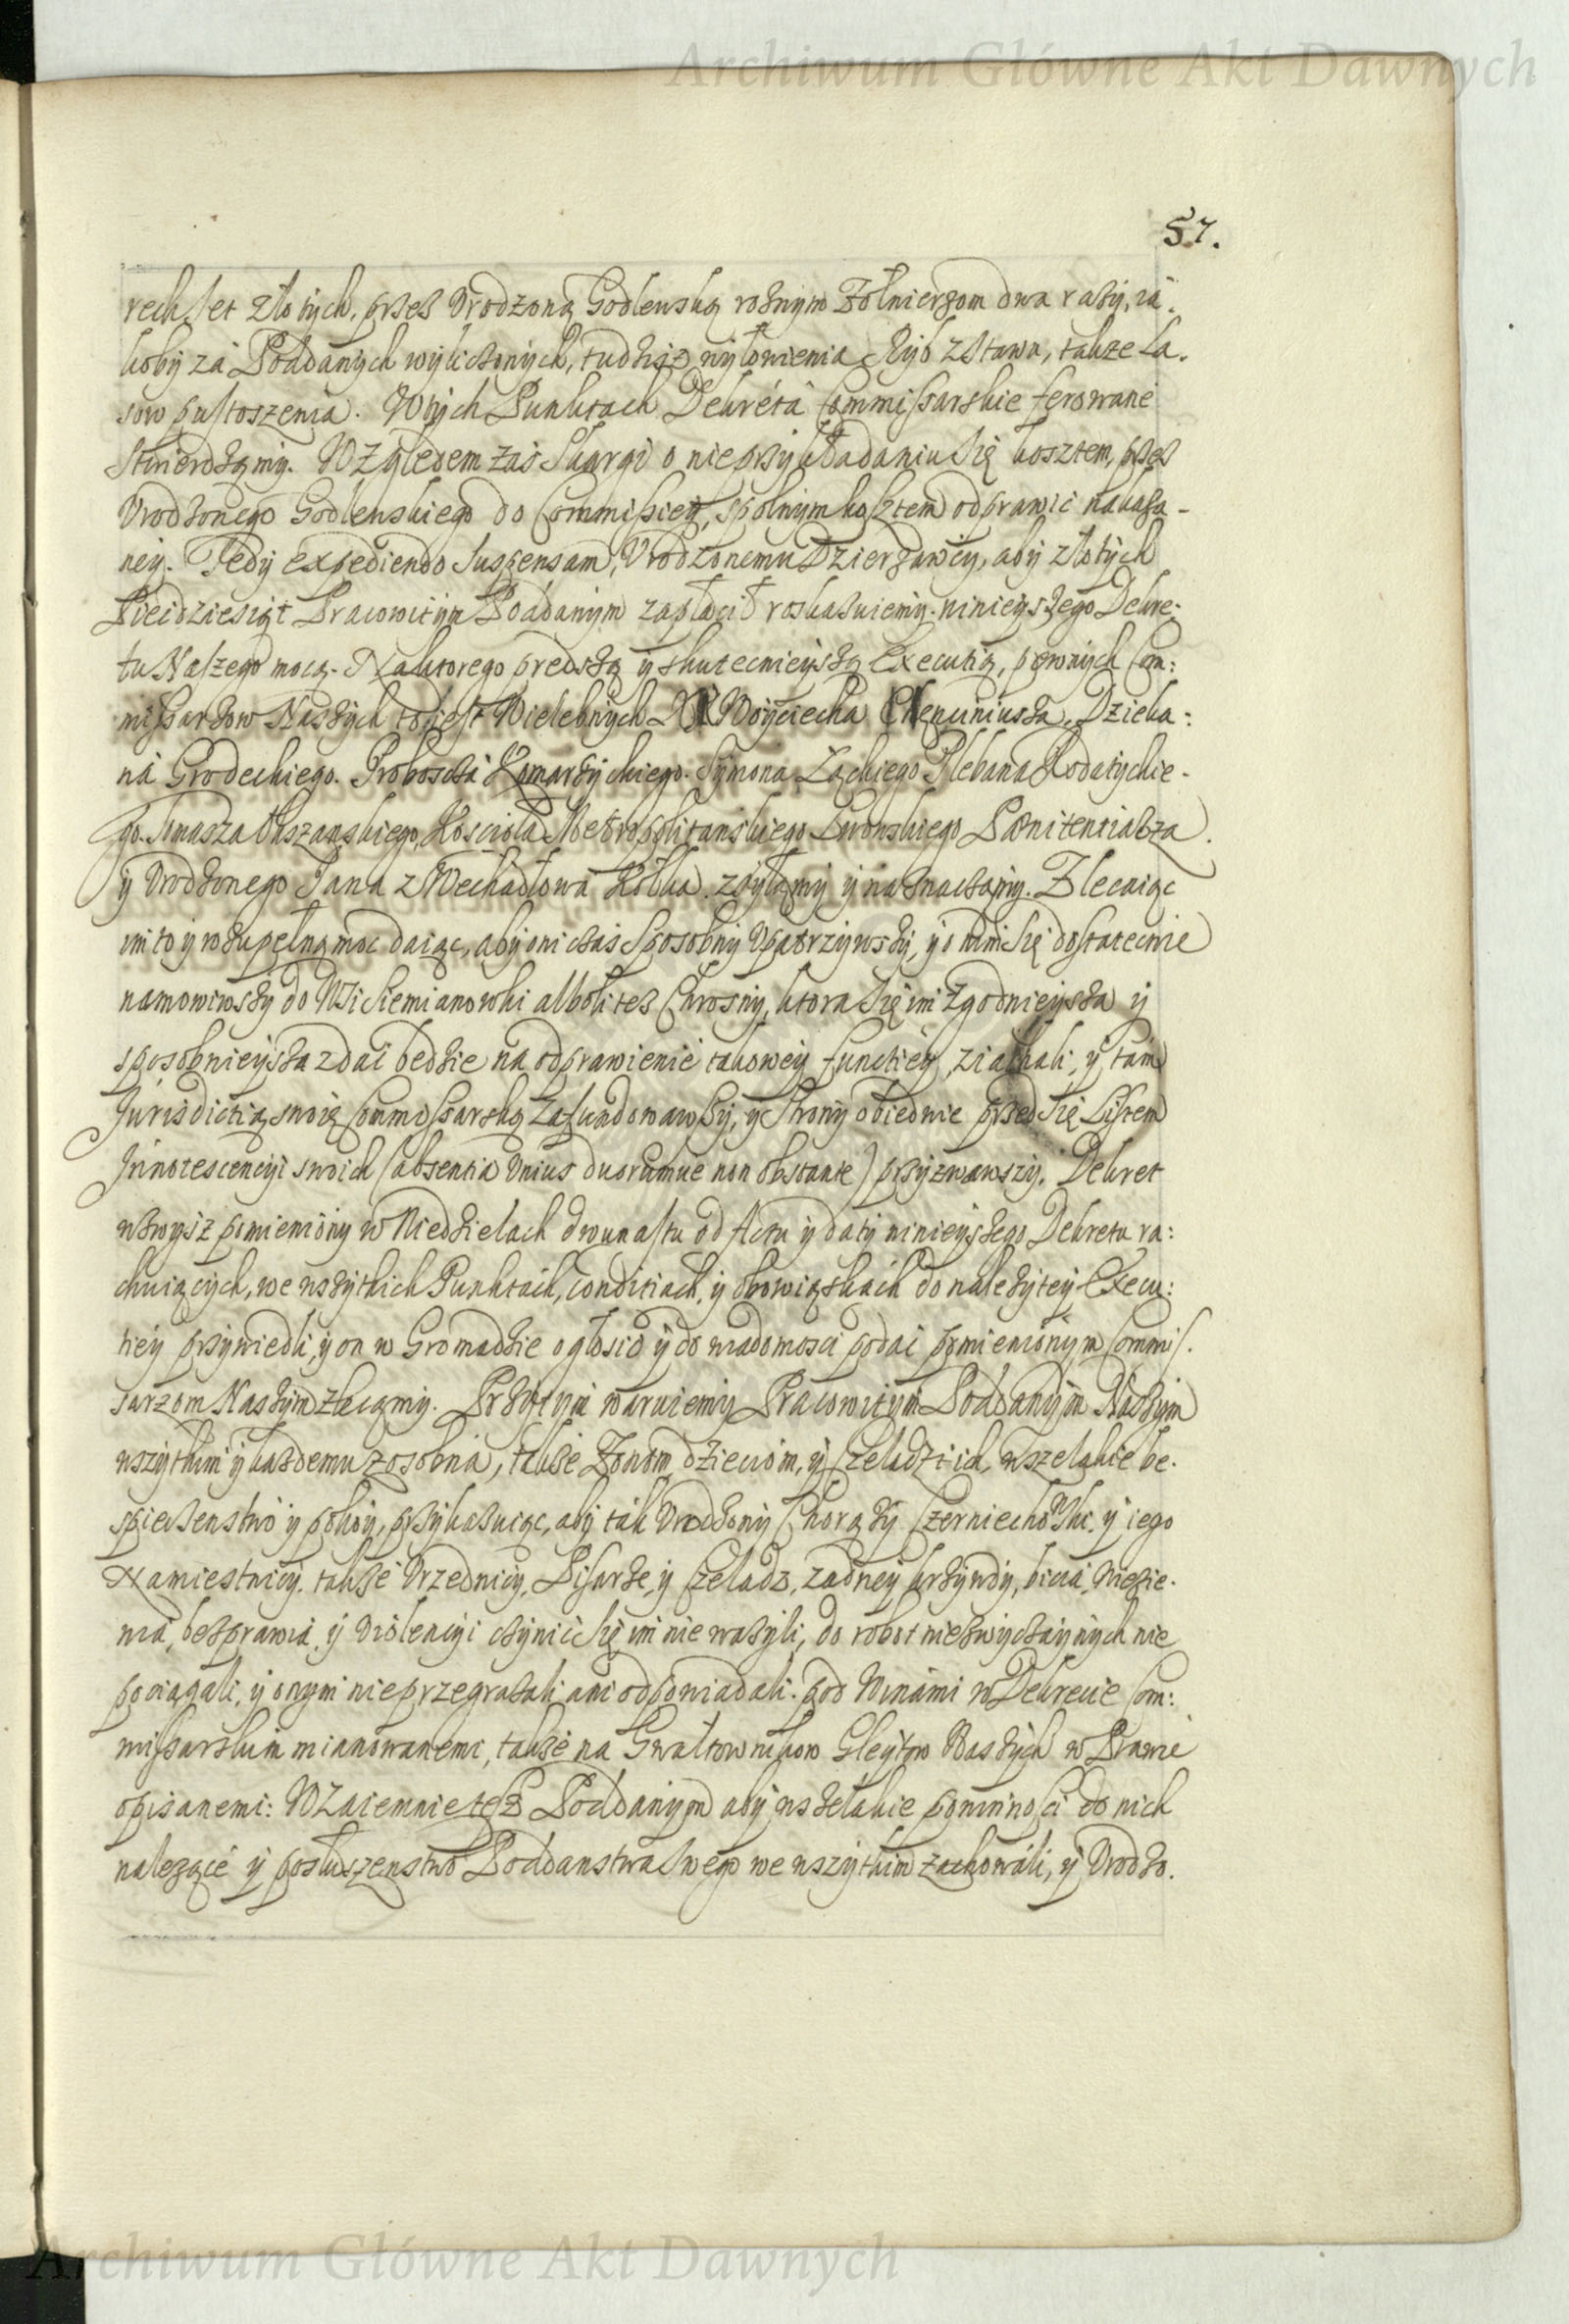 57.
rech set złotych, przez Vrodzoną Godlewską roznym Zołnierzom dwa razy, ia-
koby za Poddanych wyliczonych, tudziesz wyłowienia Ryb z stawu, takze La-
sow pustoszenia. W tych Punktach Dekreta Commissarskie ferowane
stwierdzamy. Względem zaś skargi o nieprzykładaniu się kosztem, przez
Vrodzonego Godlewskiego do Commissiey, spolnym kosztem odprawić nakaza-
ney. Tedy expediendo suspensam, Vrodzonemu Dzierzawcy, aby złotych
Piećdziesiąt Pracowitym Poddanym zapłacił roskazuiemy ninieyszego Dekre-
tu Naszego mocą. Na ktorego prędszą y skutecznieyszą Executią, pewnych Com:
missarzow Naszych to iest Wielebnych XX Woyciecha Chenciniusza, Dzieka:
na Grodeckiego. Proboszcza Komarzyckiego. Symona Ząckiego Plebana Rodatyckie-
go. Tomasza Vhszanskiego, Kościoła Metropolitanskiego Lwowskiego Pœnitentiarza
y Vrodzonego Jana z Wechadłowa Kołka zsyłamy y naznaczamy. Zlecaiąc
im to y w zupełną moc daiąc, aby oni czas sposobny vpatrzywszy, y o nim się dostatecznie
namowiwszy do Wsi Siemianowki albo li tez Chrosny, ktora się im zgodnieysza y
sposobnieysza zdać bedzie na odprawienie takowey functiey ziachali, y tam
Jurisdictią swoię Commissarską zafundowawszy, y Strony obiedwie przed się Listem
Innotescencyi swoich (absentia vnius duorumue non obstante) przyzwawszy. Dekret
wzwysz pomieniony w Niedzielach dwunastu od Actu y daty ninieyszego Dekretu ra:
chuiących, we wszytkich Punktach, conditiach, y obowiązkach do nalezytey Execu:
tiey przywiedli, y on w Gromadzie ogłosić y do wiadomosci podać pomienionym Commis-
sarzom Naszym zlecamy. Przytym waruiemy Pracowitym Poddanym Naszym
wszytkim y kazdemu zosobna, takze Zonom, dzieciom, y Czeladzi ich, wszelakie be-
spieczenstwo y pokoy, przykazuiąc, aby tak Vrodzony Chorązy Czerniechowski, y iego
Namiestnicy, takze Vrzednicy, Pisarze, y Czeladz, zadney krzywdy, bicia, Wiezie-
nia, bezprawia, y violencyi czynić się im nie wazyli, do robot niezwyczaynych nie
pociągali, y onym nieprzegrazali ani odpowiadali. pod Winami w Dekrecie Com:
missarskim mianowanemi, takze na Gwałtownikow Gleytow Naszych w Prawie
opisanemi: Wzaiemnie tesz Poddanym aby wszelakie powinności do nich
nalezące y posłuszenstwo Poddanstwa swego we wszytkim zachowali, y Vrodzo-
Archiwum Główne Akt Dawnych
Archiwum Główne Akt Dawnych